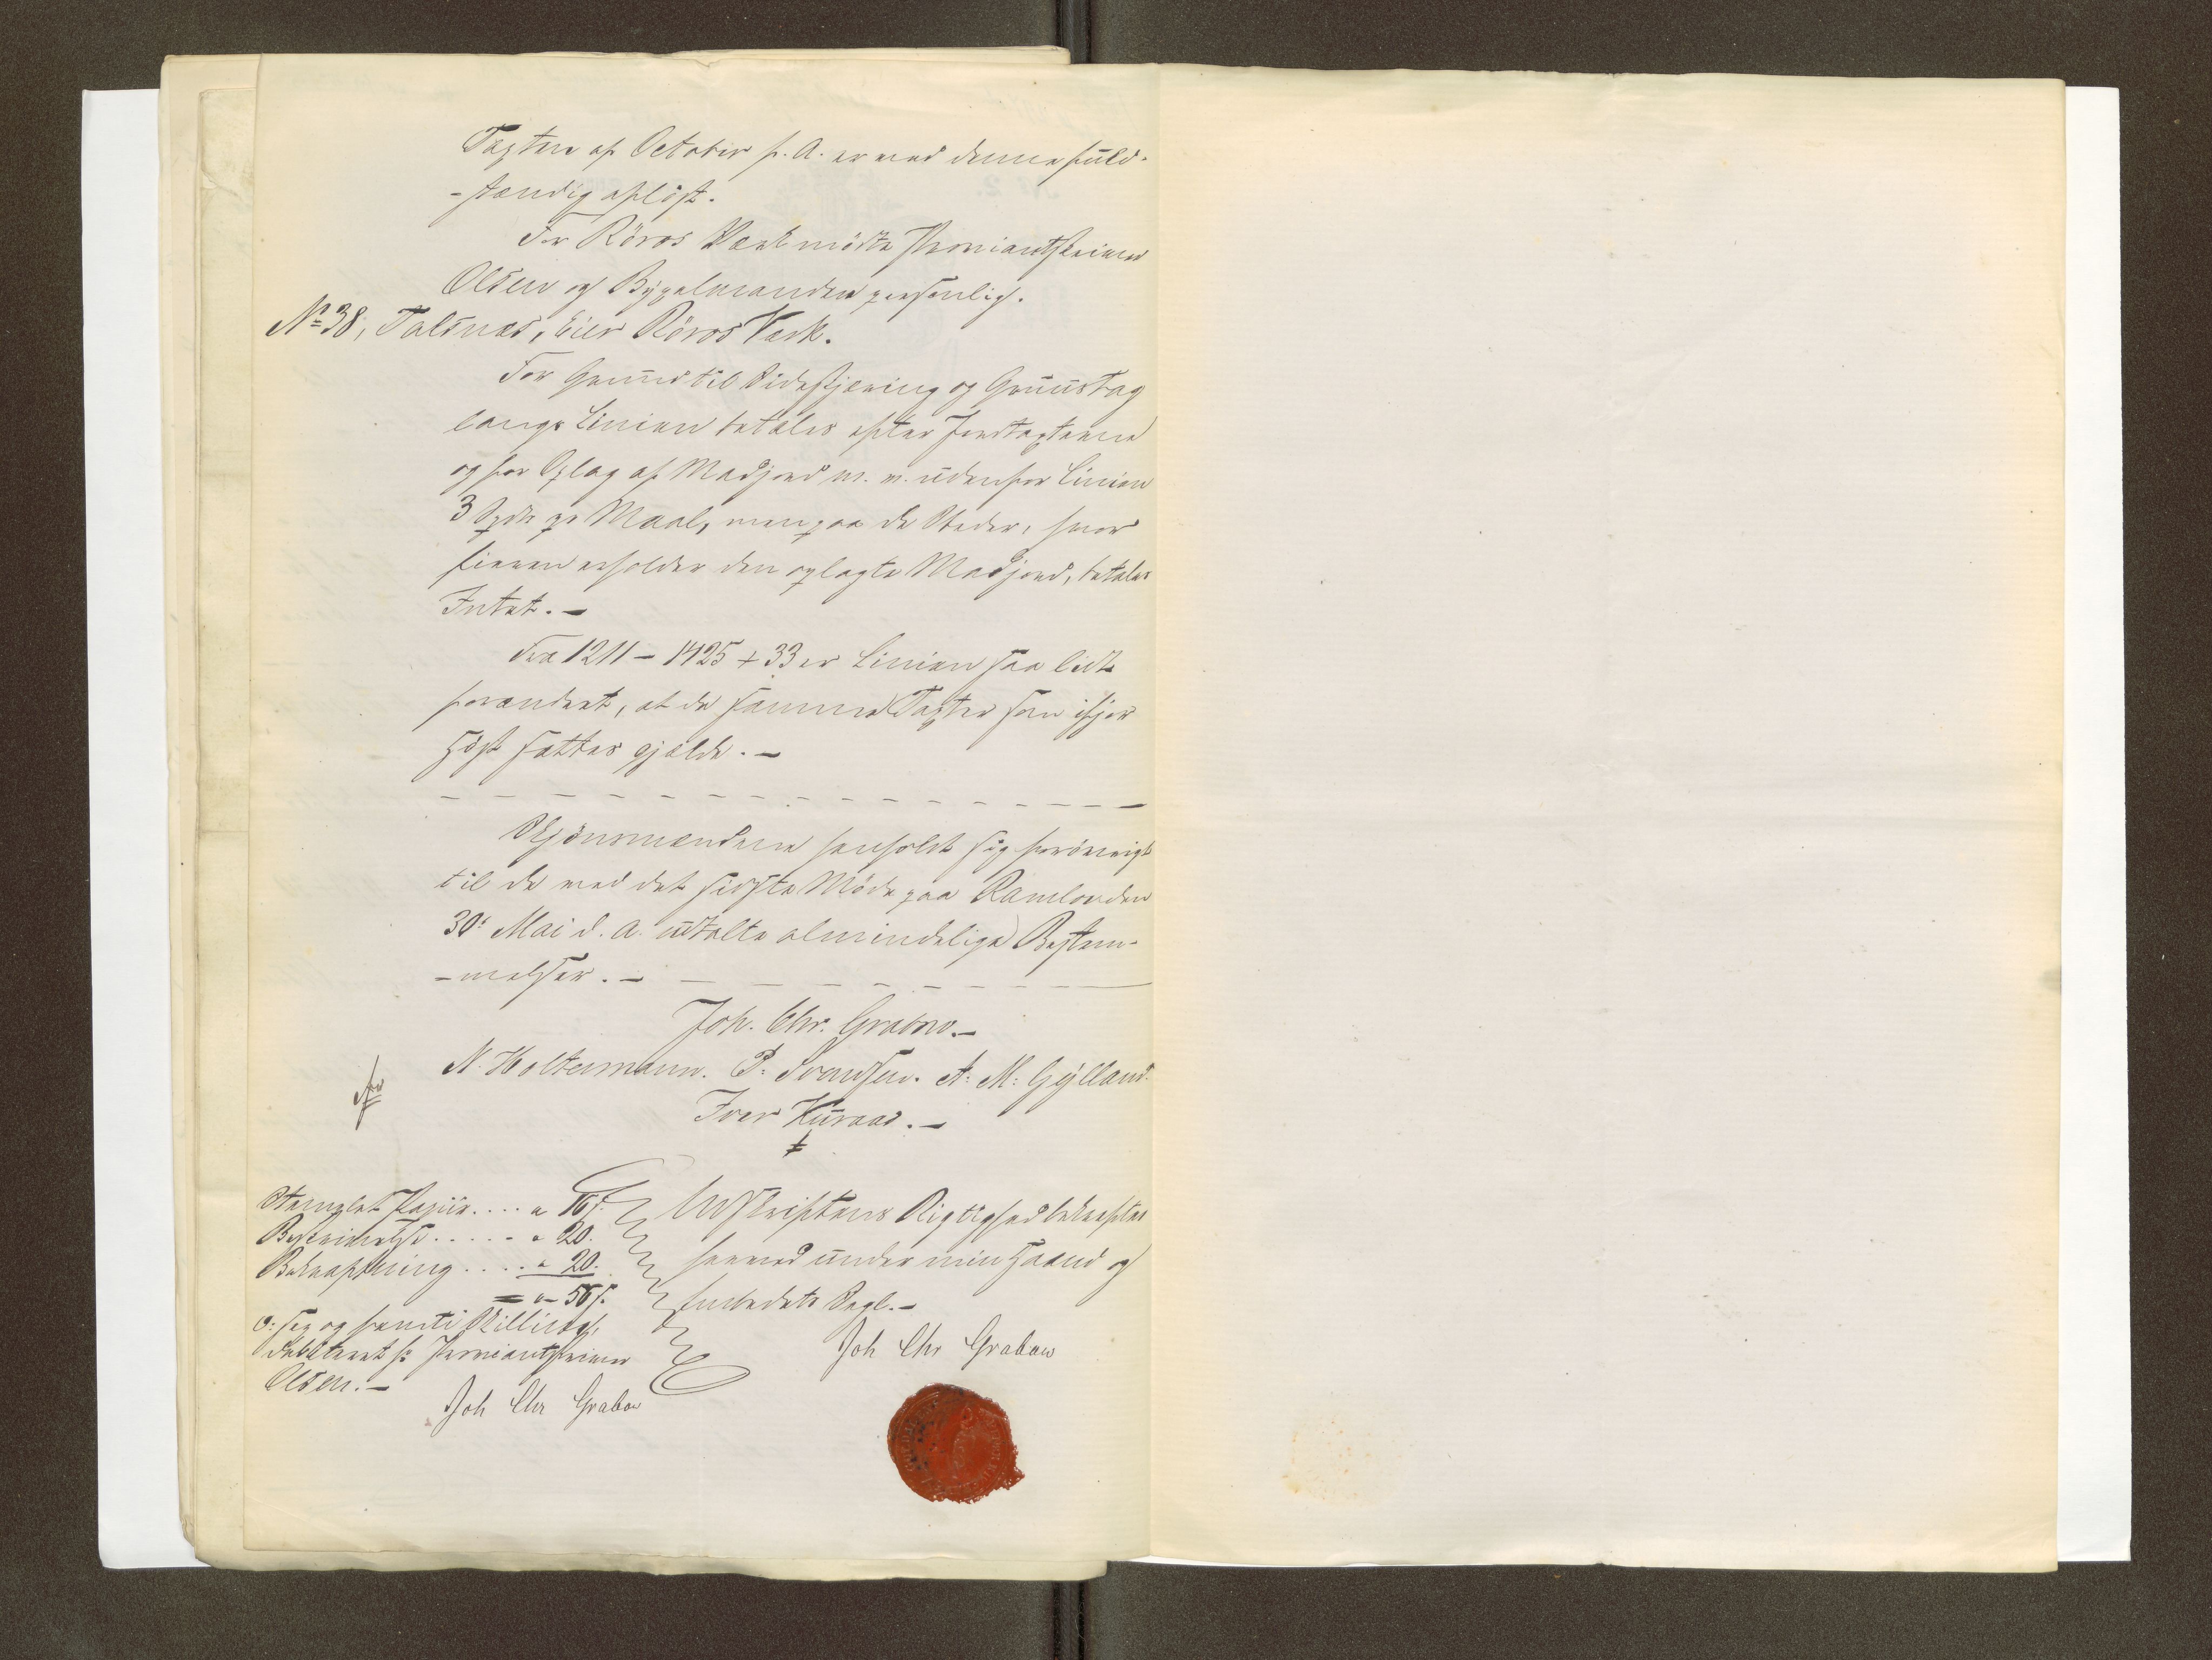 Taxten af October f. A. er med denne fuld-
-stændig afløst.
For Röros Værk mödte Proviantskriver
Olsen og Bygselmanden personlig.
No 38, Talsnæs, Eier Röros Værk.
For Grund til Sideskjæring og Gruustag
langs Linien betales efter Jordtaxterne
og for Oplag af Madjord m. m. udenfor Linien
3 Spdr pr Maal, men paa de Steder, hvor
Eieren erholder den oplagte Madjord, betales
Intet. -
Fra 1211 - 1425 + 33 er Linien saa lidt
forandret, at de samme Taxter som ifjor
Höst sattes gjælde. -
Skjönsmændene henholdt sig forövrigt
til de ved det sidste Möde paa Ramlo den
30te Mai d. A. udtalte almindelige Bestem-
-melser. -
Joh. Chr. Grabow. -
N. Holtermann. P. Svendsen. A. M. Gylland.
Iver Kuraas. -
Stemplet Papiir .... " 16 s.
Beskrivelse ..... " 20.
Bekræftning .... " 20.
= " - 56 s.
o: sex og femti Skilling,
debiteret hr Proviantskriver
Olsen. -
Joh Chr Grabow
Udskriftens Rigtighed bekræftes
herved under min Haand og
Embedets Segl. -
Joh Chr Grabow